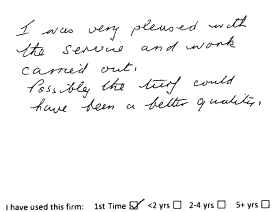 I was very pleased with
the service and work
carried out.
Possibly the turf could
have been a better quality.
I have used this firm: 1st Time ☑ <2 yrs ☐ 2-4 yrs ☐ 5+ yrs ☐